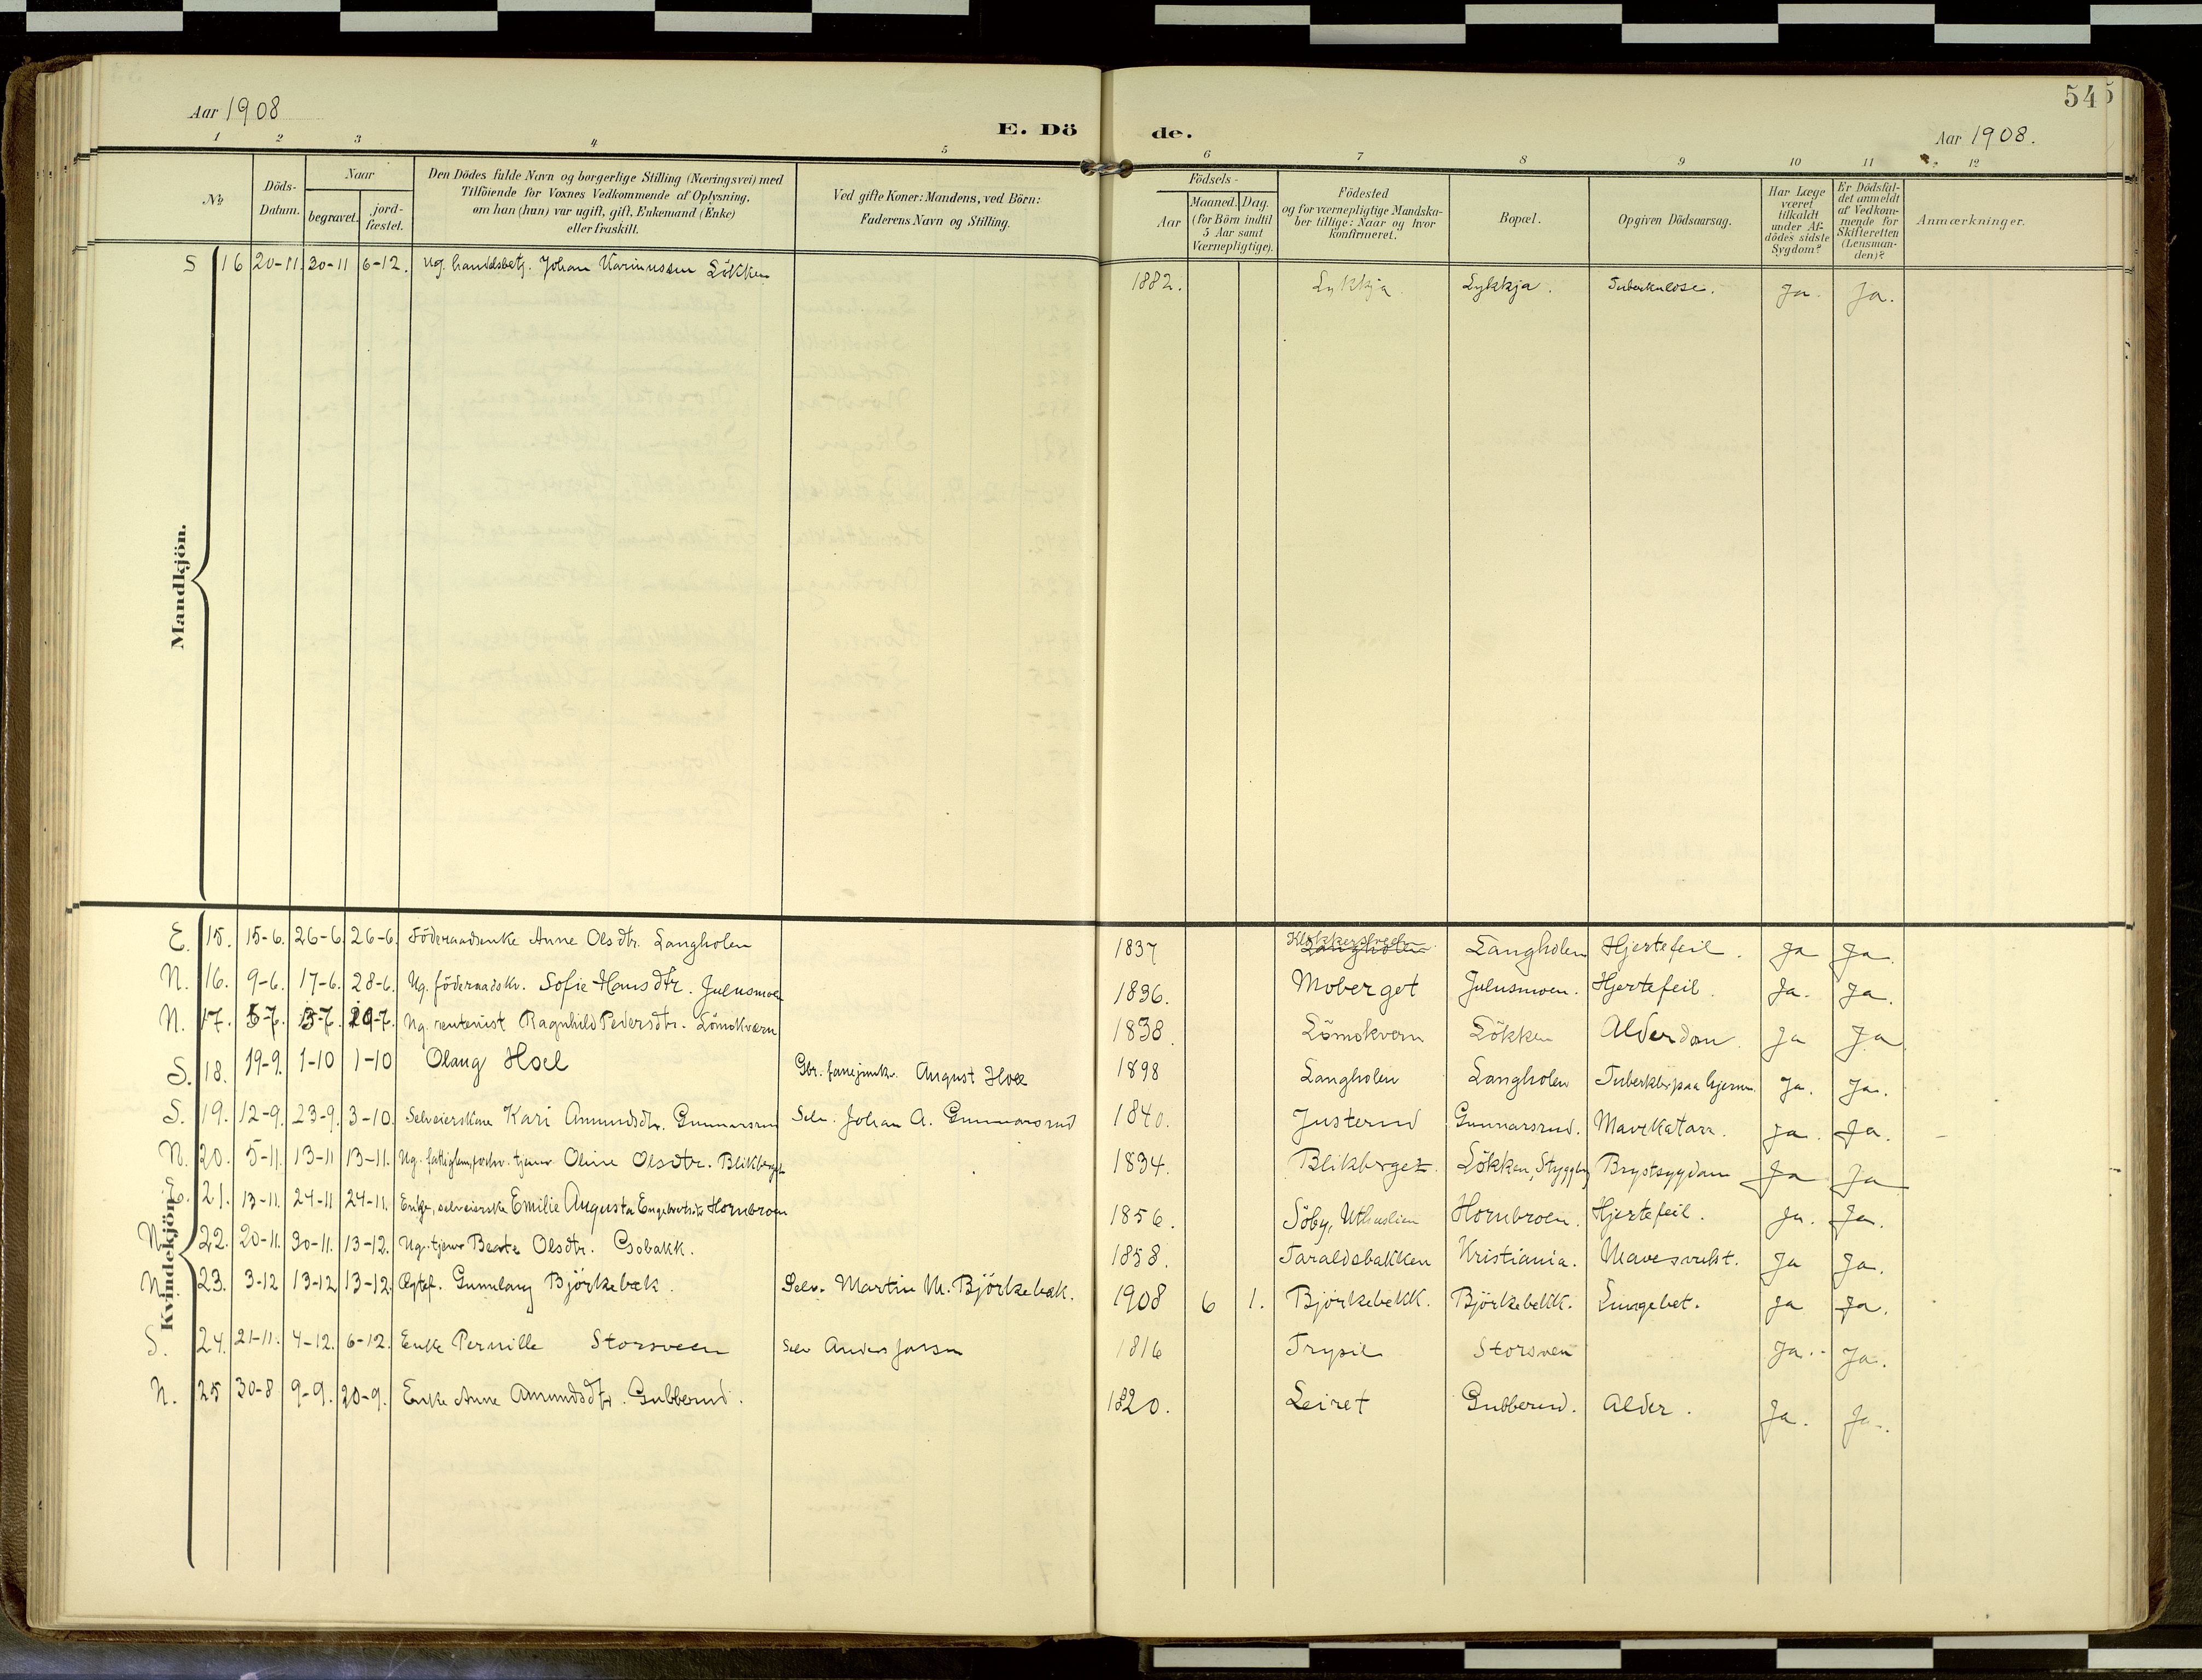 Aar 1908
E. Dö
de.
545
Aar 1908.
1 2 3 4 5 6 7 8 9 10 11 12
№
Döds-Datum.
Naar
begravet.
jord-fæstet.
Den Dödes fulde Navn og borgerlige Stilling (Næringsvei) med
Tilföiende for Voxnes Vedkommende af Oplysning,
om han (hun) var ugift, gift, Enkemand (Enke)
eller fraskilt.
Ved gifte Koner: Mandens, ved Börn:
Faderens Navn og Stilling.
Födsels-
Aar
Maaned. Dag.
(for Börn indtil
5 Aar samt
Værnepligtige).
Födested
og for værnepligtige Mandska-
ber tillige: Naar og hvor
konfirmeret.
Bopæl.
Opgiven Dödsaarsag.
Har Læge
været
tilkaldt
under Af-
dödes sidste
Sygdom?
Er Dödsfal-
det anmeldt
af Vedkom-
mende for
Skifteretten
(Lensman-
den)?
Anmærkninger.
Mandkjön.
S 16 20-11. 30-11 6-12. Ug. handelsbetj. Johan Karinussen Lökken 1882. Lykkja. Lykkja. Tuberkulose. Ja. Ja.
Kvindekjön.
E. 15. 15-6. 26-6. 26-6. Föderaadsenke Anne Olsdtr. Langholen 1837 Langholen Hjertefeil. Ja Ja.
N. 16. 9-6. 17-6. 28-6. Ug. föderaadskv. Sofie Hansdtr. Julusmoen 1836. Moberget Julusmoen. Hjertefeil. Ja. Ja.
N. 17. 5-7. 13-7. 19-7. Ug. rentenist Ragnhild Pedersdtr. Lömokværn 1838. Lömokvern Lökken Alderdom. Ja Ja
S. 18. 19-9. 1-10 1-10 Olaug Hoel Gbr. fanejunk. August Hoel 1898 Langholen Langholen Ja. Ja.
S. 19. 12-9. 23-9. 3-10. Selveierskone Kari Amundsdtr. Gunnarsrud Selv. Johan A. Gunnarsrud 1840. Justerud Gunnarsrud. Mavekatarr. Ja. Ja.
N. 20. 5-11. 13-11 13-11. Ug. tjener Oline Olsdtr. Blikberget 1834. Blikberget. Lökken, Styggberg Brystsygdom Ja Ja
E. 21. 13-11. 24-11 24-11. Enke, selveierske Emilie Augusta Engebretsdtr Hornbroen 1856. Söby, Uthuslien Hornbroen. Hjertefeil. Ja. Ja.
N. 22. 20-11. 30-11. 13-12. Ug. tjener Beate Olsdtr. Osbakk. 1858. Taraldsbakken Kristiania. Ja Ja.
N. 23. 3-12 13-12 13-12. Ægtef. Gunnlaug Björkebæk. Selv. Martin M. Björkebæk. 1908 6 1. Björkebekk. Björkebekk. Lungebet. Ja Ja.
S. 24. 21-11. 4-12. 6-12. Enke Pernille Storsveen Selv Anders Jonsen 1816 Trysil Storsveen Ja. Ja.
N. 25 30-8 9-9. 20-9. Enke Anne Amundsdtr. Gubberud. 1820. Leiret Gubberud. Alder. Ja. Ja.